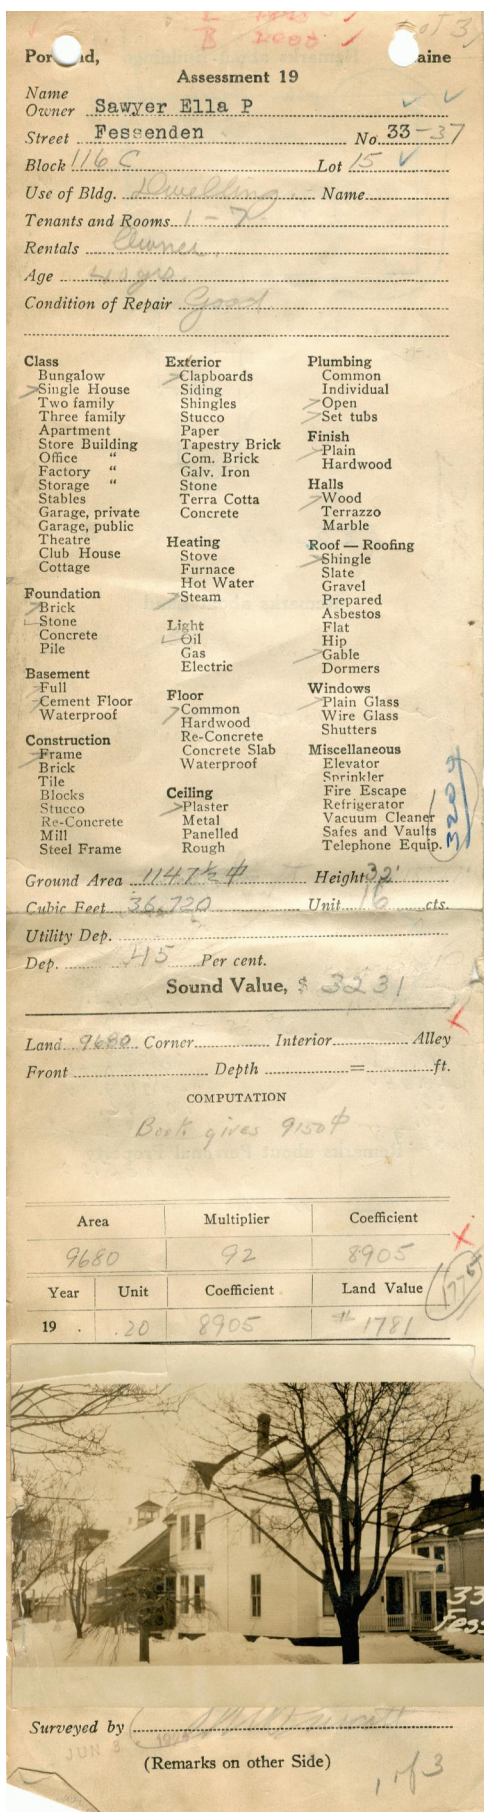 B
Portland, Maine
of 3
Assessment 19
Name
Owner Sawyer Ella P
Street Fessenden No. 33-37
Block 116 C Lot 15
Use of Bldg. Dwelling Name
Tenants and Rooms 1 - 7
Rentals Owner
Age 40 yrs.
Condition of Repair Good
Class
Bungalow
Single House
Two family
Three family
Apartment
Store Building
Office "
Factory "
Storage "
Stables
Garage, private
Garage, public
Theatre
Club House
Cottage
Foundation
Brick
Stone
Concrete
Pile
Basement
Full
Cement Floor
Waterproof
Construction
Frame
Brick
Tile
Blocks
Stucco
Re-Concrete
Mill
Steel Frame
Exterior
Clapboards
Siding
Shingles
Stucco
Paper
Tapestry Brick
Com. Brick
Galv. Iron
Stone
Terra Cotta
Concrete
Heating
Stove
Furnace
Hot Water
Steam
Light
Oil
Gas
Electric
Floor
Common
Hardwood
Re-Concrete
Concrete Slab
Waterproof
Ceiling
Plaster
Metal
Panelled
Rough
Plumbing
Common
Individual
Open
Set tubs
Finish
Plain
Hardwood
Halls
Wood
Terrazzo
Marble
Roof — Roofing
Shingle
Slate
Gravel
Prepared
Asbestos
Flat
Hip
Gable
Dormers
Windows
Plain Glass
Wire Glass
Shutters
Miscellaneous
Elevator
Sprinkler
Fire Escape
Refrigerator
Vacuum Cleaner
Safes and Vaults
Telephone Equip.
Ground Area 1147½ Height 32'
Cubic Feet 36,720 Unit 16 cts.
Utility Dep.
Dep. 45 Per cent.
Sound Value, $ 3231
Land 9680 Corner Interior Alley
Front Depth = ft.
COMPUTATION
Book gives 9150
Area Multiplier Coefficient
9680 92 8905
Year Unit Coefficient Land Value
19 .20 8905 $1781
33
Fess
Surveyed by
JUN 3
(Remarks on other Side)
1 of 3